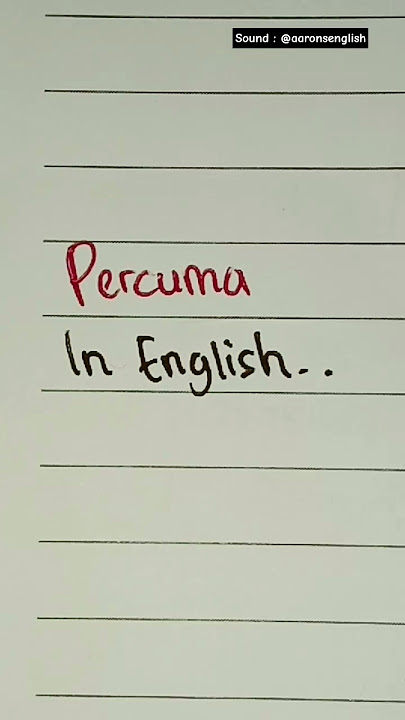 Sound : @aaronsenglish
Percuma
In English..